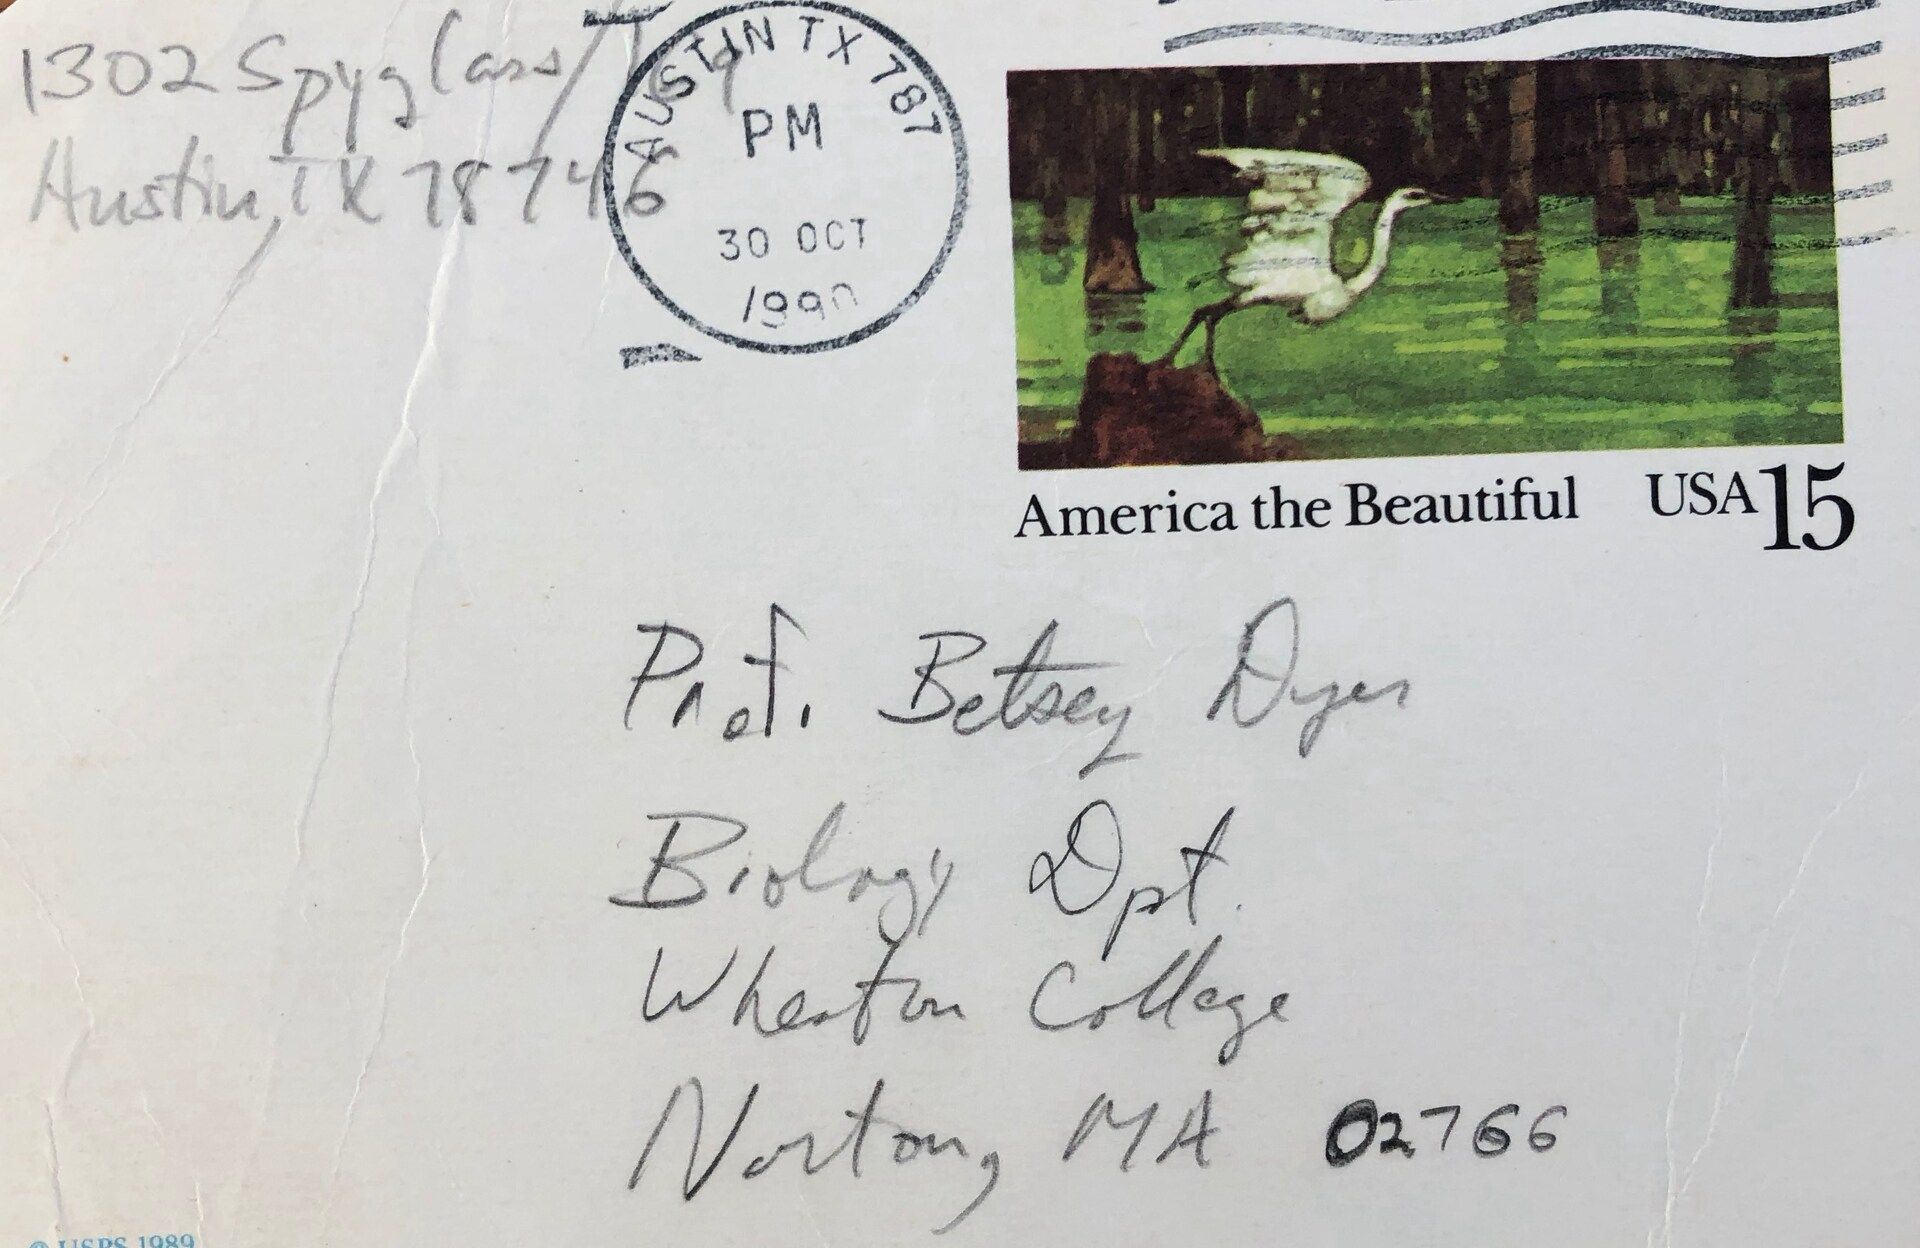 1302 Spyglass
Austin, TX 78746
AUSTIN TX 787
PM
30 OCT
1990
America the Beautiful USA 15
Prof. Betsey Dyer
Biology Dpt.
Wheaton College
Norton, MA 02766
© USPS 1989